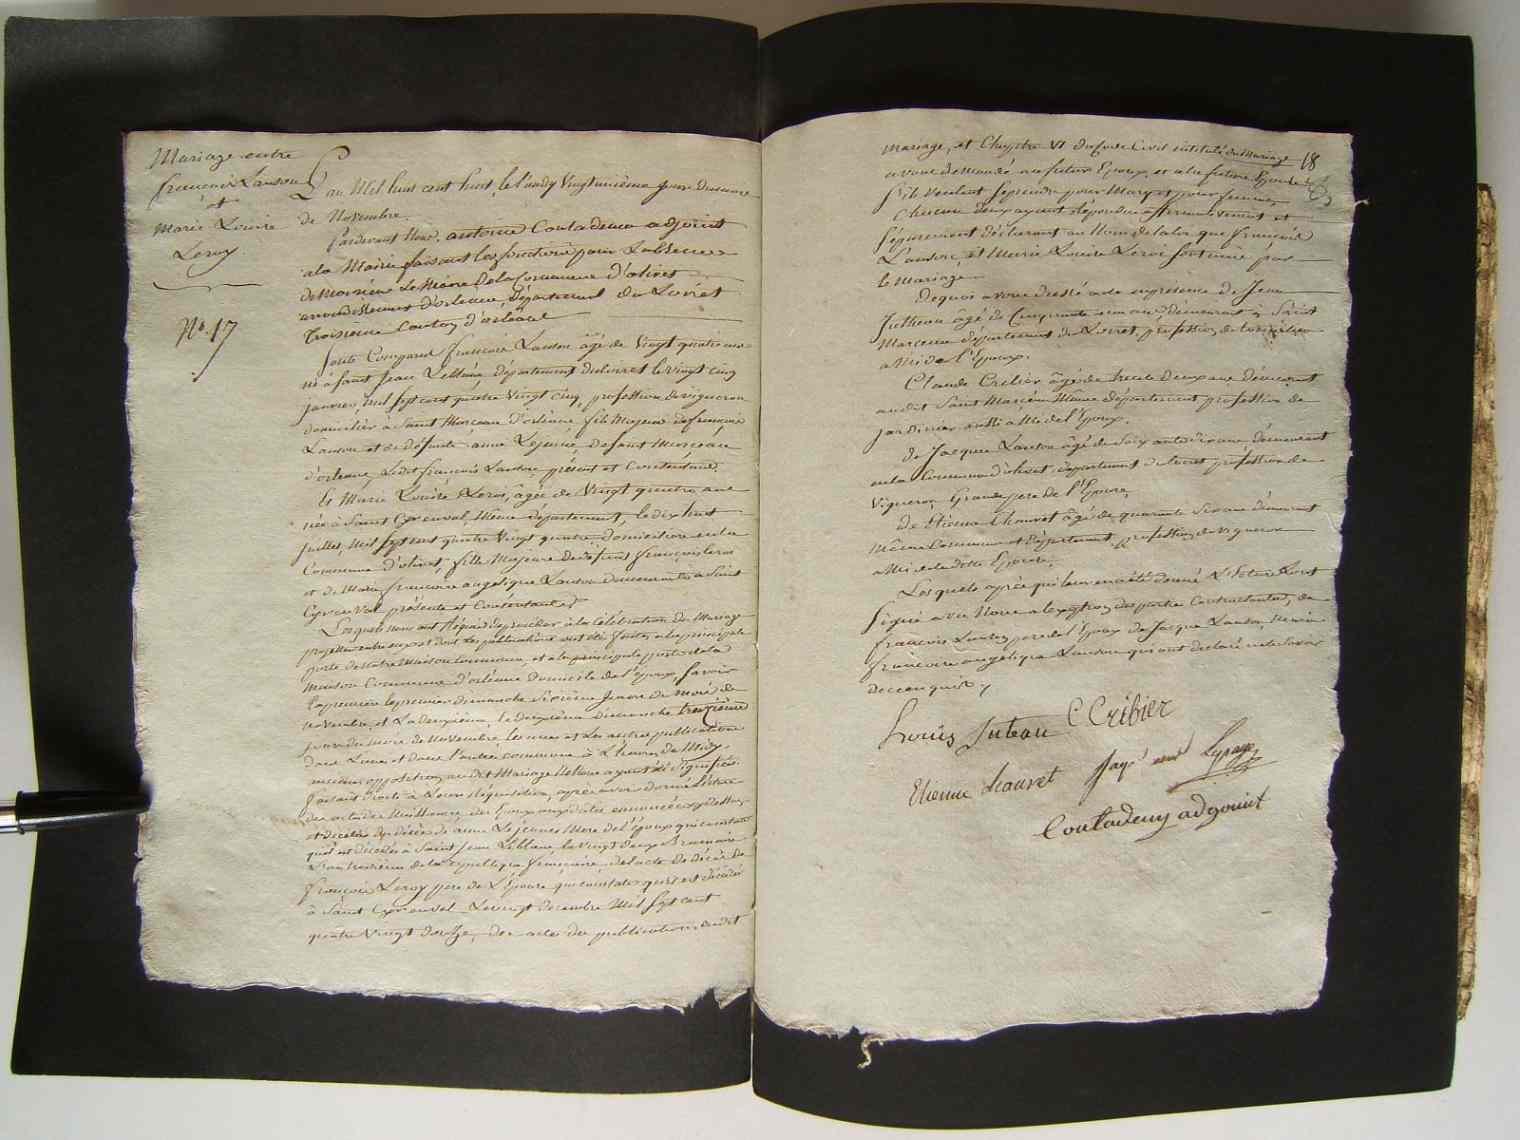 Mariage entre
françois Lanson
et
Marie Louise
Leroy
N°. 17
L'an Mil huit cent huit le Lundy Vingt unième jour du mois
de Novembre.
Pardevant Nous, antoine Couladeau adjoint
a la Mairie faisant les fonctions pour Labsence
de Monsieur Le Maire de la Commune d'olivet
arrondissement d'orléans, Département du Loiret
Troisieme Canton d'orléans
Sont Comparus françois Lanson âgé de Vingt quatre ans
né à saint Jean Leblanc, département du loiret le vingt cinq
janvier, mil sept cent quatre Vingt cinq, profession de vigneron
domicilier à Saint Marceau d'orléans fils Majeur de françois
Lanson et de défunte anne Lejeune, de saint Marceau
d'orleans, Ledit françois Lanson présent et Consentant.
Et Marie Louise Leroi, agée de Vingt quatre ans
née à Saint Cyr en val, Même département, le dix huit
juillet, mil sept cent quatre Vingt quatre domiciliée en la
Commune d'olivet, fille Majeure de défunt françois leroi
et de Marie françoise angelique Lanson demeurante à Saint
Cyr en Val présente et Consentante
Lesquels nous ont Requis de procéder à la Célébration du Mariage
projetté entre eux et dont les publications ont été faites, a la principale
porte de notre Maison Commune, et à la principale porte de la
Maison Commune d'orléans domicile de l'époux, savoir
la première le premier dimanche sixième jour du mois de
novembre, et La deuxième, le deuxième dimanche treizième
jour du mois de Novembre, les unes et Les autres publications
à L'heure de Midy.
aucune opposition audit Mariage Ne Nous ayant été Signifiée.
faisant droit à Leurs Réquisition, après avoir donné lecture
des actes de Naissance des Epoux
et de celui de décès de anne Le jeune Mere de l'époux qui constate
qu'elle est décédée à Saint Jean Leblanc, le vingt deux Brumaire
L'an troisième de la République française, de l'acte de décès de
françois Leroy père de L'Epouse qui constate qu'il est décédé
à Saint Cyr en val Le vingt decembre Mil sept cent
quatre Vingt douze, des actes des publications dudit
18
mariage, et Chapitre VI du Code Civil intitulé du Mariage
avons demandé au futur Epoux, et à la future Epouse
s'ils Veulent se prendre pour Mary et pour femme,
Chacun d'eux ayant répondu affirmativement et
séparement déclarons au Nom de la loi que françois
Lanson, et Marie Louise Leroi sont unie par
le Mariage
De quoi avons dressé acte en présence de Jean
âgé de Cinquante ans demeurant à Saint
Marceau département du Loiret, profession de
ami de l'Epoux.
Claude Cribier âgé de trente deux ans demeurant
audit Saint Marceau Même département profession de
jardinier aussi ami de l'Epoux.
de Jacques Lanson âgé de soixante dix ans demeurant
en la Commune d'olivet, département du loiret profession de
Vigneron Grand pere de l'Epouse,
de Etienne Chauvet âgé de quarante six ans demeurant
Même Commune et Département, profession de vigneron
ami de la ditte Epouse.
Lesquels après qu'il leur en a été donné Lecture L'ont
Signé avec Nous a l'exception des partie Contractantes, de
francois Lanson pere de l'époux de Jacques Lanson, Marie
francoise angelique Lanson qui ont declaré ne le savoir
de ce enquis.
Louis Juteau C Cribier
Etienne chauvet
Couladeau adjoint